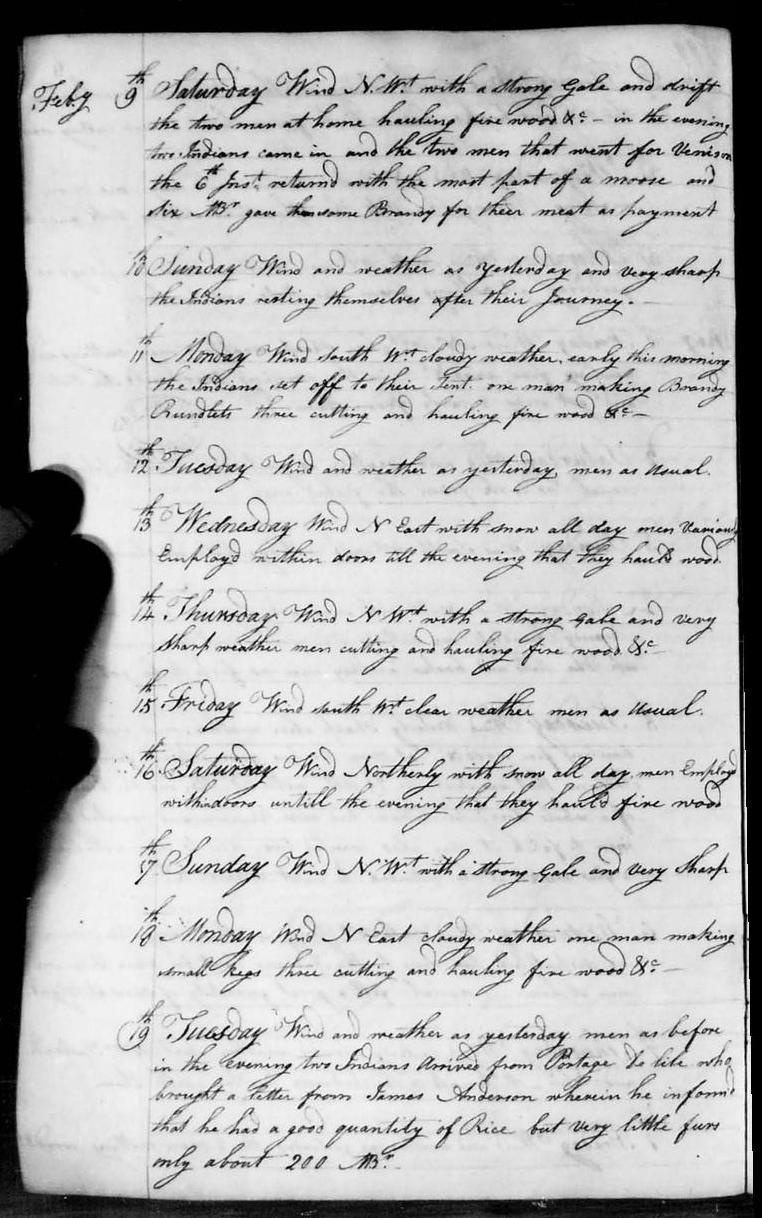 Feby 9th Saturday Wind N. Wt with a strong Gale and drift
the two men at home hauling fire wood &c - in the evening
two Indians came in and the two men that went for Venison
the 6th Inst. returnd with the most part of a moose and
six MBr gave them some Brandy for their meat as payment
10th Sunday Wind and weather as yesterday and very sharp
the Indians resting themselves after their Journey. -
11th Monday Wind South Wt cloudy weather, early this morning
the Indians set off to their Tent. one man making Brandy
Rundlets three cutting and hauling fire wood &c -
12th Tuesday Wind and weather as yesterday, men as usual.
13th Wednesday Wind N East with snow all day men Variously
Employd within doors till the evening that they hauld wood.
14th Thursday Wind N. Wt with a strong gale and very
Sharp weather men cutting and hauling fire wood &c -
15th Friday Wind south Wt clear weather men as Usual.
16th Saturday Wind Northerly with snow all day, men Employd
within doors untill the evening that they hauld fire wood
17th Sunday Wind N. Wt with a strong gale and very Sharp
18th Monday Wind N East cloudy weather one man making
small kegs three cutting and hauling fire wood &c -
19th Tuesday Wind and weather as yesterday men as before
in the evening two Indians arrived from Portage De lile who
brought a letter from James Anderson wherein he informd
that he had a good quantity of Rice but very little furs
only about 200 MBr.